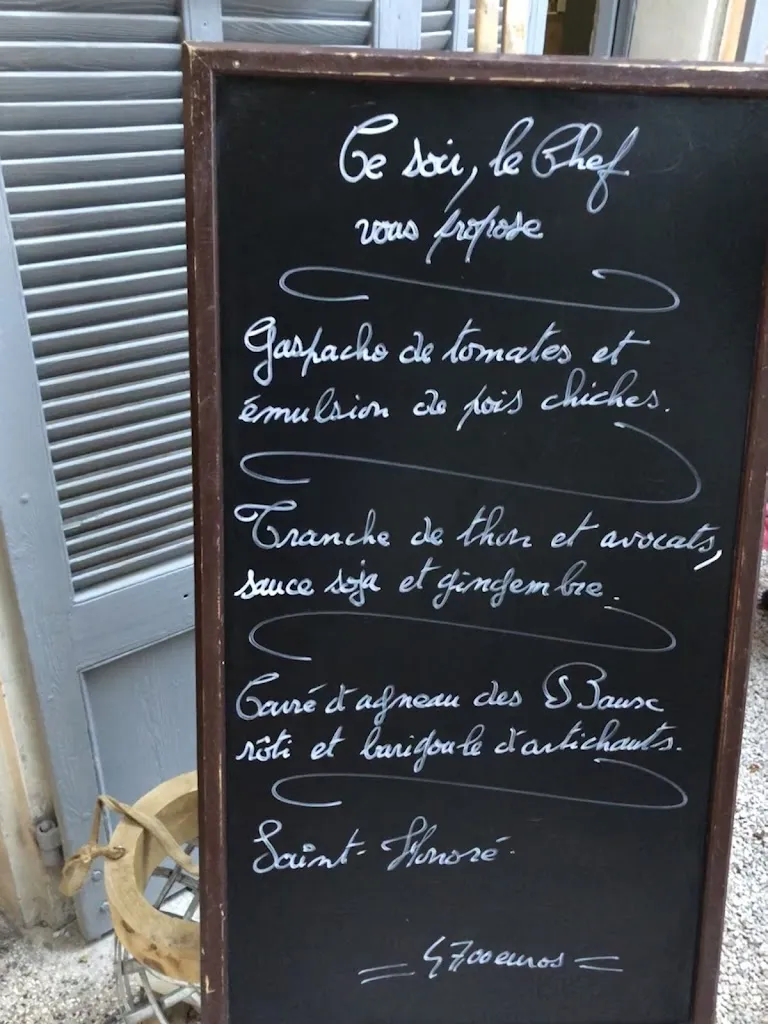 Ce soir, le Chef
vous propose
Gaspacho de tomates et
émulsion de pois chiches.
Tranche de thon et avocats,
sauce soja et gingembre.
Carré d'agneau des Baux
rôti et barigoule d'artichauts.
Saint-Honoré.
= 4700 euros =